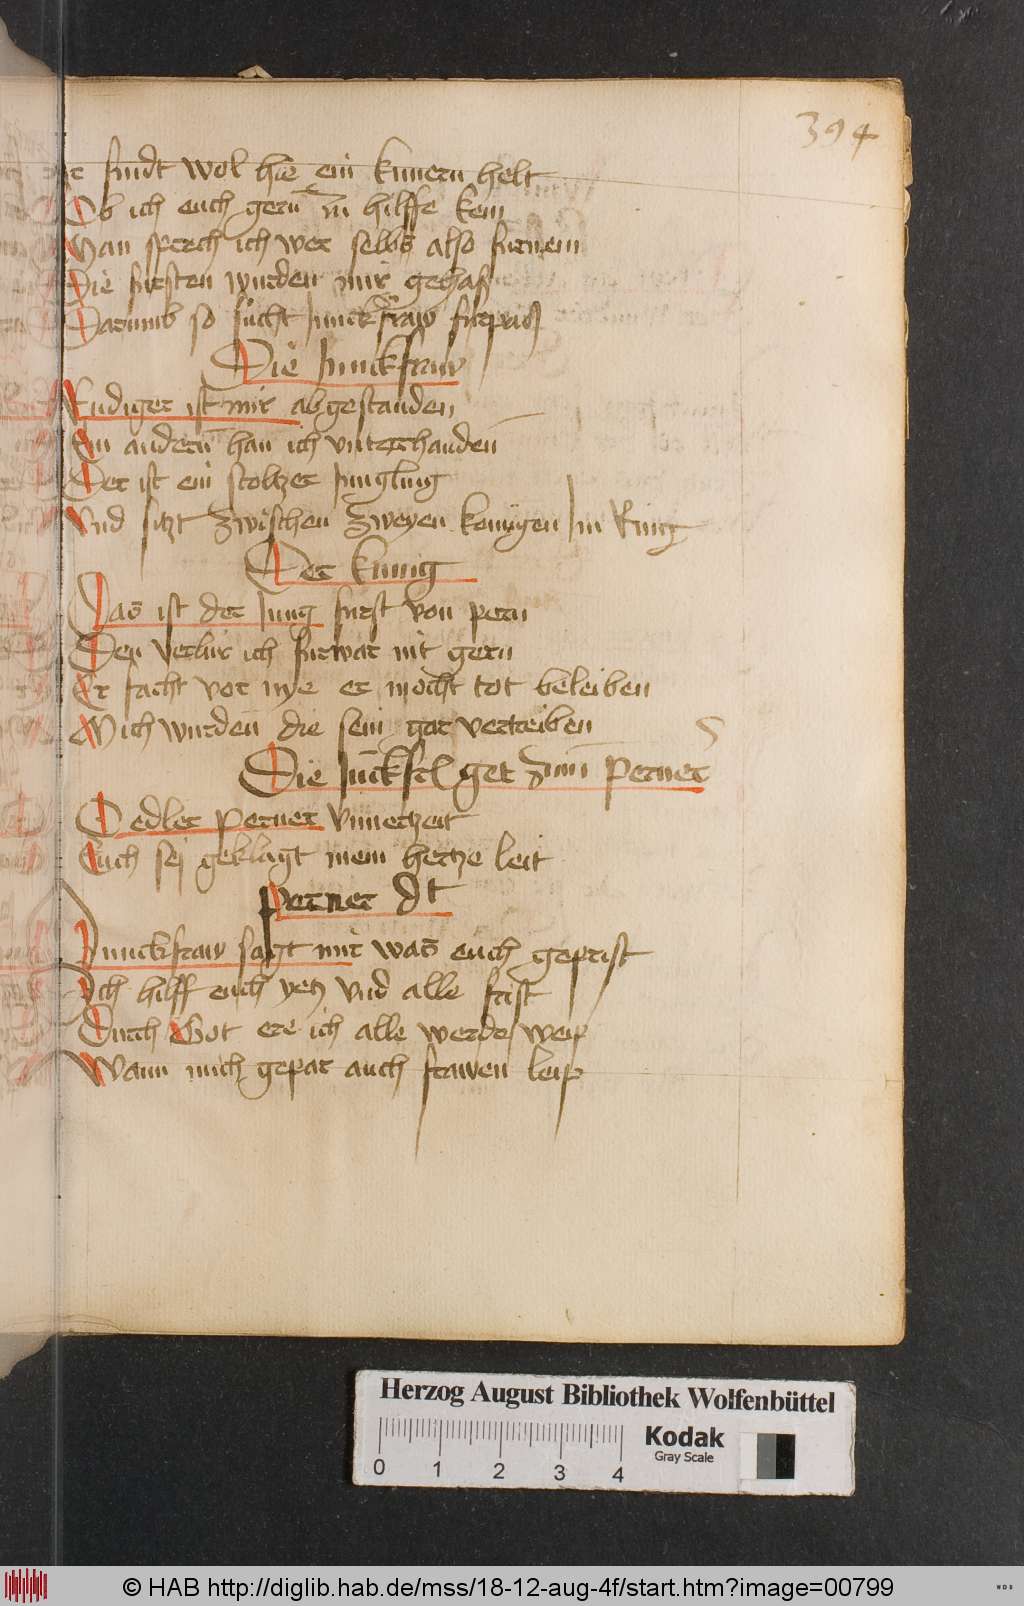 394
r findt wol hie ein kunern helt
Ob ich euch gern zu hilffe kem
Man sprech ich wer selbs also furnem
Die fursten wurden mir gehaß
Darumb so sucht Junckfraw furpaß
Die Junckfraw
Rudiger ist mir abgestanden
Ein andern han ich vnterhanden
Der ist ein stoltzer Jungling
Vnd sitzt zwischen zweyen konigen Im Ring
Der kunig
Das ist der Jung furst von pern
Den verlur ich furwar nit gern
Er facht vor nye er mocht tot beleiben
Mich wurden die sein gar vertreiben
Die Junckfr get zum Perner
O edler Perner vnuerzeit
Euch sej geklagt mein hertze leit
Perner dt
Junckfraw sagt mir was euch geprist
Ich hilff euch yetz vnd alle frist
Durch Got ere ich alle werde weip
Wann mich gepar auch frawen leip
Herzog August Bibliothek Wolfenbüttel
0 1 2 3 4
Kodak
Gray Scale
© HAB http://diglib.hab.de/mss/18-12-aug-4f/start.htm?image=00799